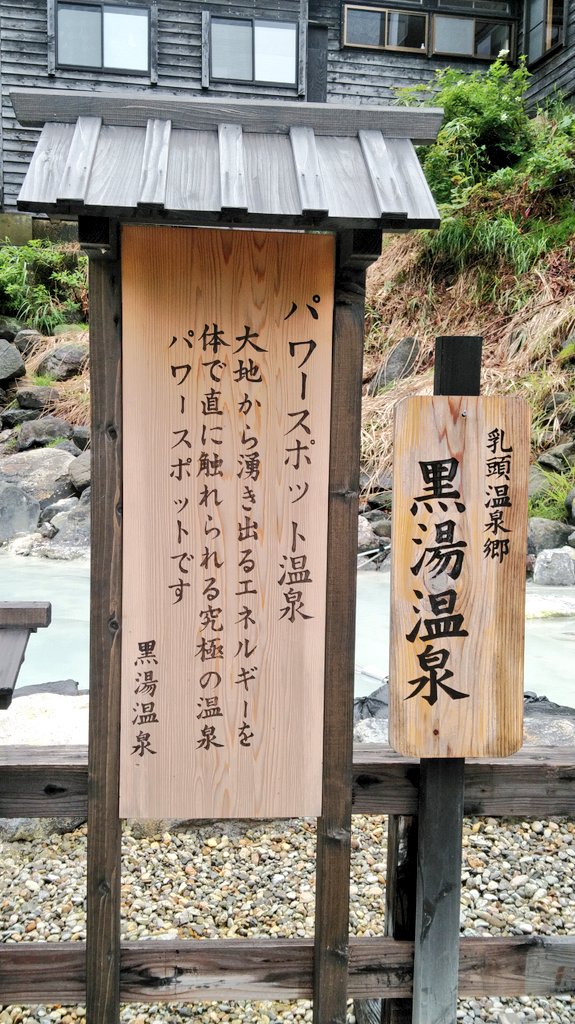 パワースポット温泉
大地から湧き出るエネルギーを
体で直に触れられる究極の温泉
パワースポットです
黒湯温泉
乳頭温泉郷
黒湯温泉